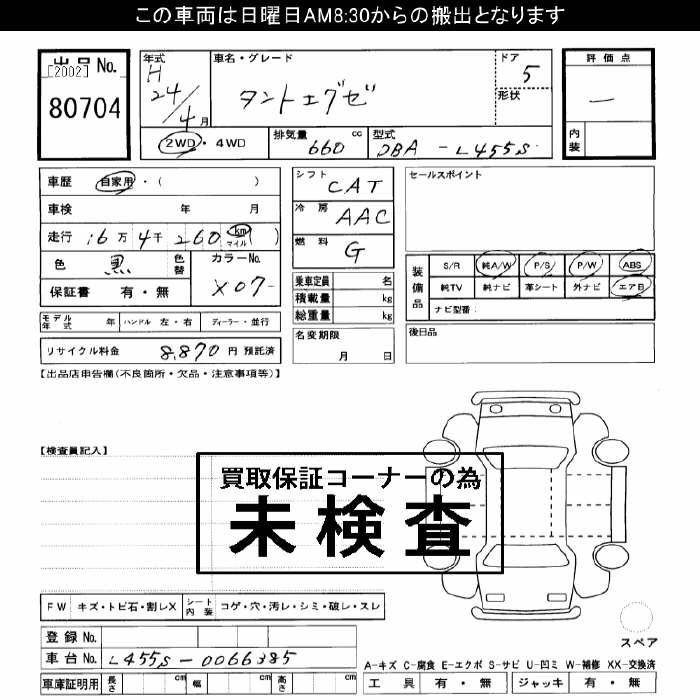 この車両は日曜日AM8:30からの搬出となります
出品 No.
[2002]
80704
年式
H
24/4月
車名・グレード
タントエグゼ
ドア
5
形状
2WD・4WD
排気量 660 cc
型式 DBA-L455S
評価点
―
内装
車歴 自家用・( )
車検 年 月
走行 16万4千260 km マイル ( )
色 黒 色替
カラーNo. X07-
保証書 有・無
モデル年式 年 ハンドル 左・右 ディーラー・並行
リサイクル料金 8,870 円 預託済
シフト CAT
冷房 AAC
燃料 G
乗車定員 名
積載量 kg
総重量 kg
名変期限
月 日
セールスポイント
装備品
S/R 純A/W P/S P/W ABS
純TV 純ナビ 革シート 外ナビ エアB
ナビ型番:
後日品
【出品店申告欄(不良箇所・欠品・注意事項等)】
【検査員記入】
買取保証コーナーの為
未検査
FW キズ・トビ石・割レX シート内装 コゲ・穴・汚レ・シミ・破レ・スレ
登録 No.
車台 No. L455S-0066385
車庫証明用 長さ cm 幅 cm 高さ cm
スペア
A-キズ C-腐食 E-エクボ S-サビ U-凹ミ W-補修 XX-交換済
工具 有・無 ジャッキ 有・無